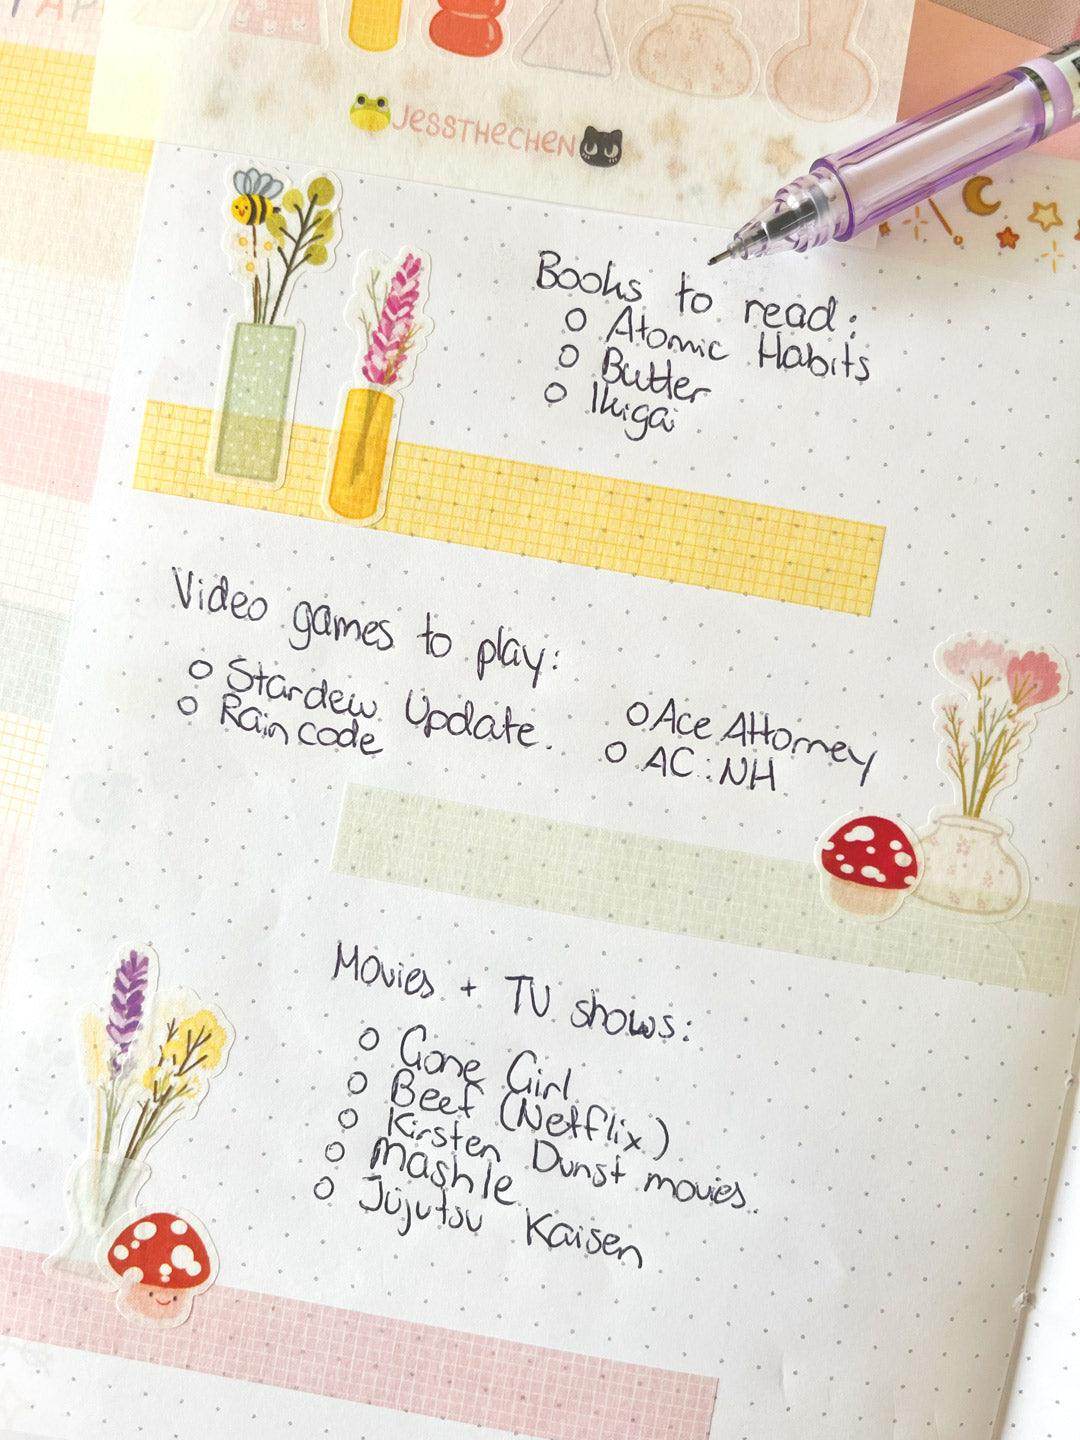 JESSTHECHEN
Books to read:
O Atomic Habits
O Butter
O Ikigai
Video games to play:
O Stardew Update.
O Rain code
O Ace Attorney
O AC:NH
Movies + TV shows:
O Gone Girl
O Beef (Netflix)
O Kirsten Dunst movies.
O Mashle
O Jujutsu Kaisen